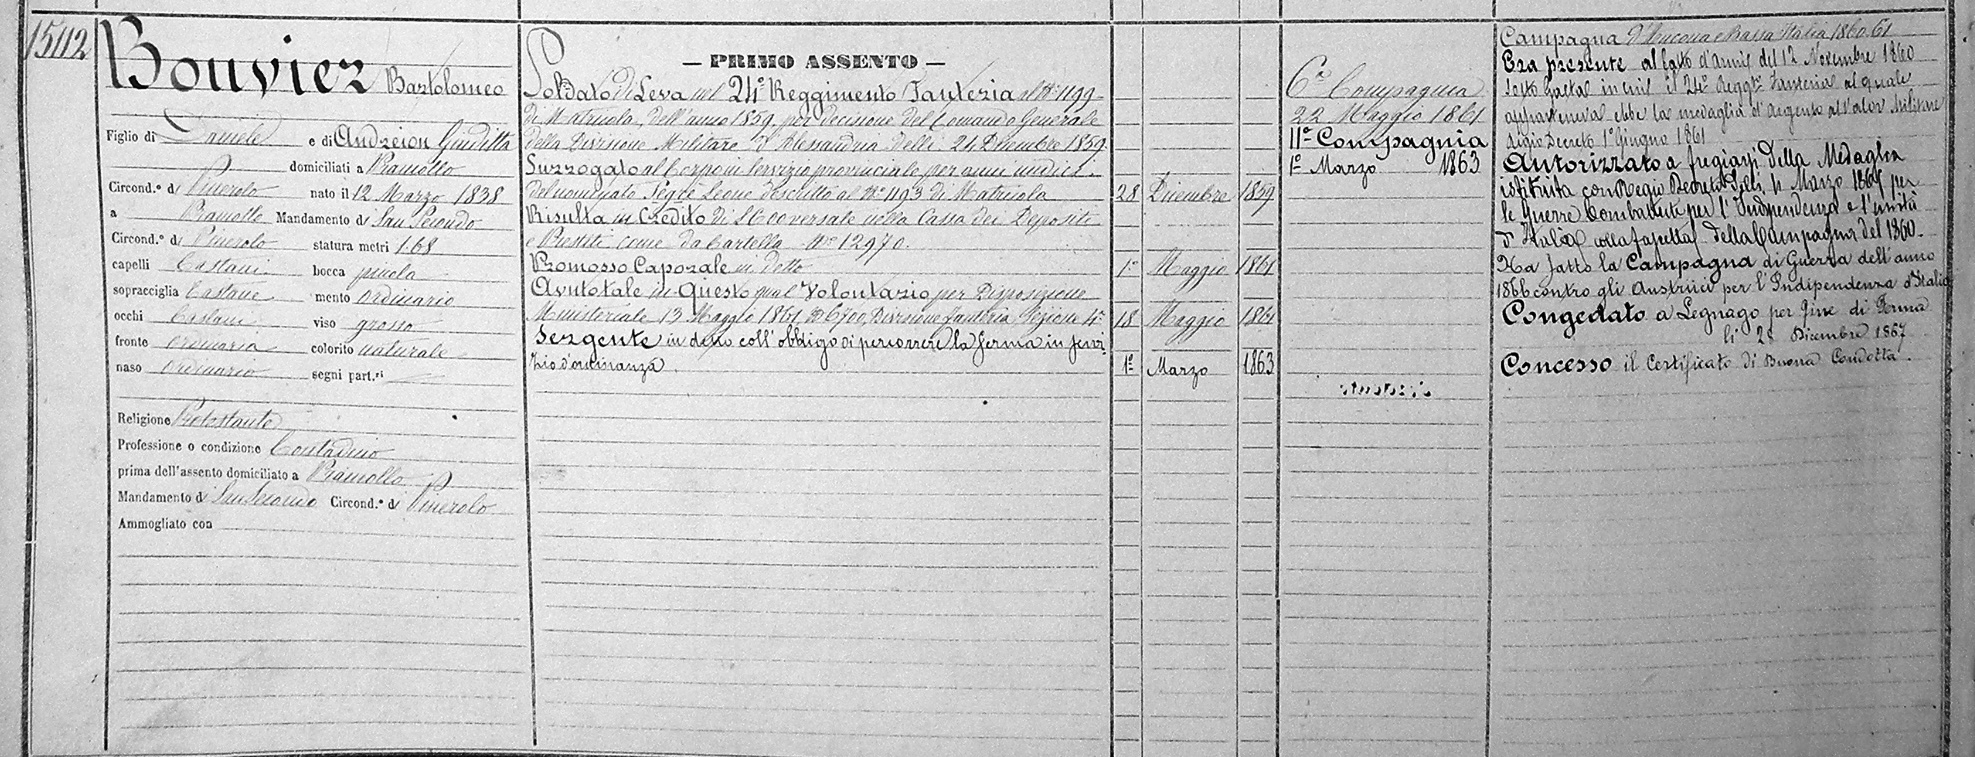 15112
Bouvier Bartolomeo
Figlio di Daniele e di Andreion Giuditta
domiciliati a Pramollo
Circond.o di Pinerolo nato il 12 Marzo 1838
a Pramollo Mandamento di San Secondo
Circond.o di Pinerolo statura metri 1.68
capelli Castani bocca piccola
sopracciglia Castane mento ordinario
occhi Castani viso grosso
fronte ordinaria colorito naturale
naso Ordinario segni part.ri
Religione Protestante
Professione o condizione Contadino
prima dell'assento domiciliato a Pramollo
Mandamento di San Secondo Circond.o di Pinerolo
Ammogliato con
— PRIMO ASSENTO —
Soldato di Leva nel 24° Reggimento Fanteria al N° 1199
di Matricola, dell'anno 1859, per decisione del Comando Generale
della Divisione Militare d'Alessandria delli 24 Dicembre 1859
Surrogato al Corpo in servizio provinciale per anni undici
del nominato Segre Leone descritto al N° 1193 di Matricola 28 Dicembre 1859
Risulta in Credito di versate nella Cassa dei Depositi
e Prestiti come da Cartella N° 12970.
Promosso Caporale in detto 1° Maggio 1861
Avuto tale in Questo qual Volontario per Disposizione
Ministeriale 13 Maggio 1861 N° 6700, Divisione fanteria Sezione 4a 18 Maggio 1861
Sergente in detto coll'obbligo di percorrere la ferma in servi-
zio d'ordinanza. 1° Marzo 1863
6a Compagnia
22 Maggio 1861
11a Compagnia
1° Marzo 1863
Campagna d'Ancona e Bassa Italia 1860.61
Era presente al fatto d'armi del 12 Novembre 1860
sotto Gaeta in cui il 24° Regg.to Fanteria al quale
apparteneva ebbe la medaglia d'Argento al Valor Militare
Regio Decreto 1° Giugno 1861
Autorizzato a fregiarsi della Medaglia
istituita con Regio Decreto delli 4 Marzo 1865 per
le Guerre Combattute per l'Indipendenza e l'unità
d'Italia colla fascetta della Campagna del 1860.
Ha fatto la Campagna di Guerra dell'anno
1866 contro gli Austriaci per l'Indipendenza d'Italia
Congedato a Legnago per fine di Ferma
li 28 Dicembre 1867
Concesso il Certificato di Buona Condotta.